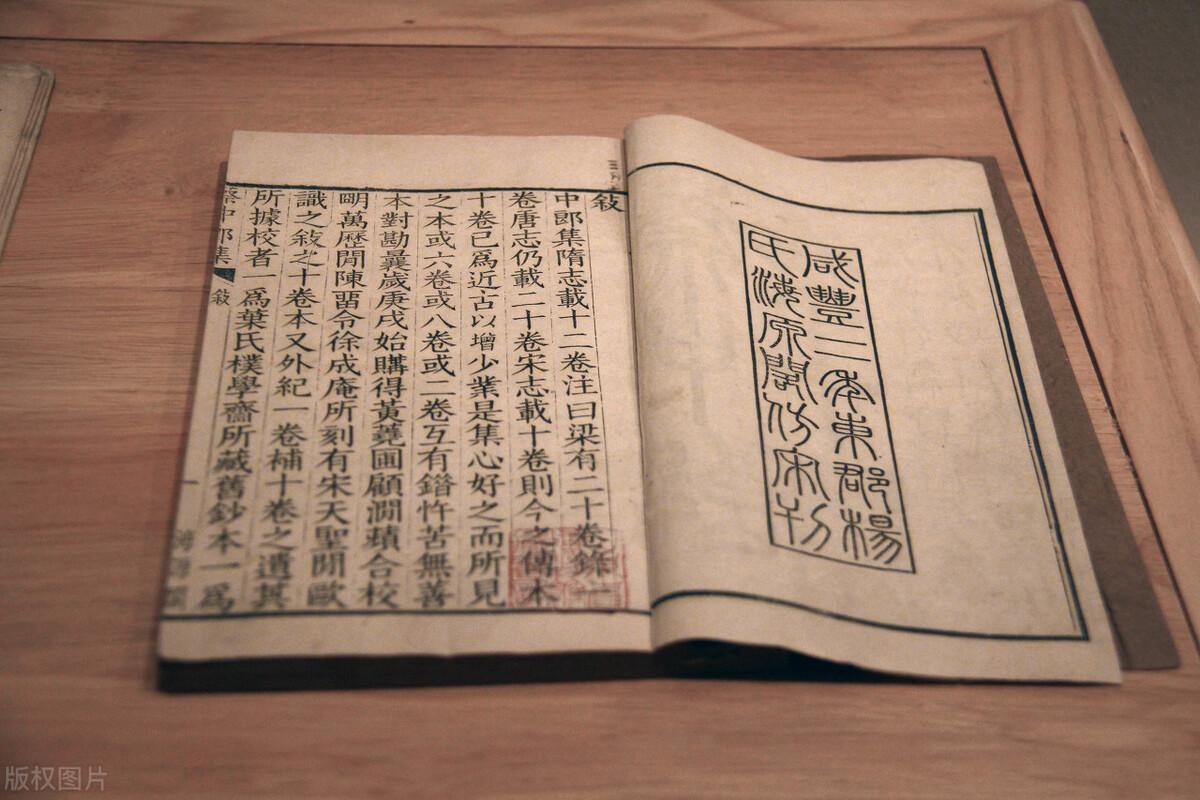 咸豐二年東郡楊
氏海原閣仿宋刊
敍
中郎集隋志載十二卷注曰梁有二十卷錄一
卷唐志仍載二十卷宋志載十卷則今之傳本
十卷已爲近古以增少業是集心好之而所見
之本或六卷或八卷或二卷互有錯忤苦無善
本對勘曩歲庚戌始購得黃蕘圃顧澗薲合校
明萬歷閒陳畱令徐成庵所刻有宋天聖閒歐
識之敍之十卷本又外紀一卷補十卷之遺其
所據校者一爲葉氏樸學齋所藏舊鈔本一爲
蔡中郎集 敍 一
版权图片